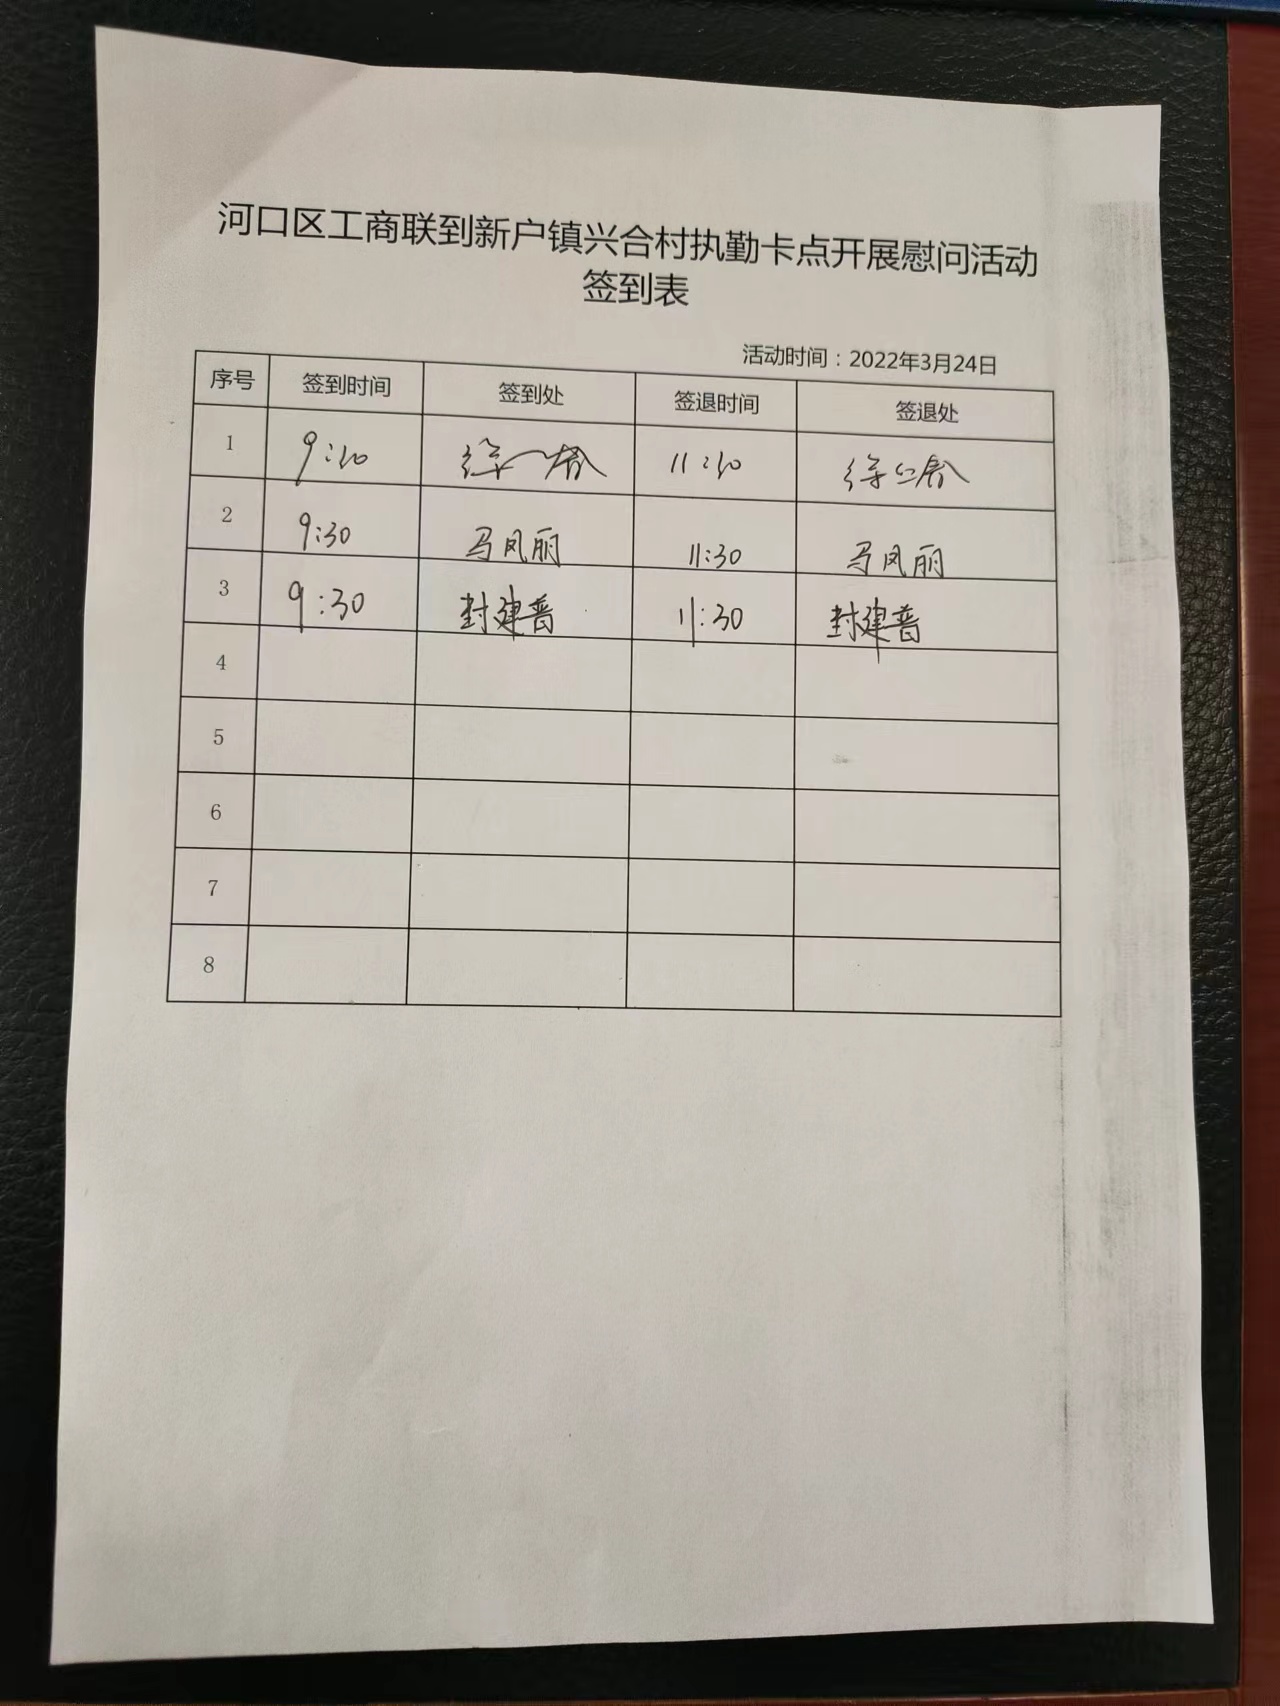 河口区工商联到新户镇兴合村执勤卡点开展慰问活动
签到表
活动时间：2022年3月24日
序号 签到时间 签到处 签退时间 签退处
1
2 9:30 马凤丽 11:30 马凤丽
3 9:30 封建普 11:30 封建普
4
5
6
7
8